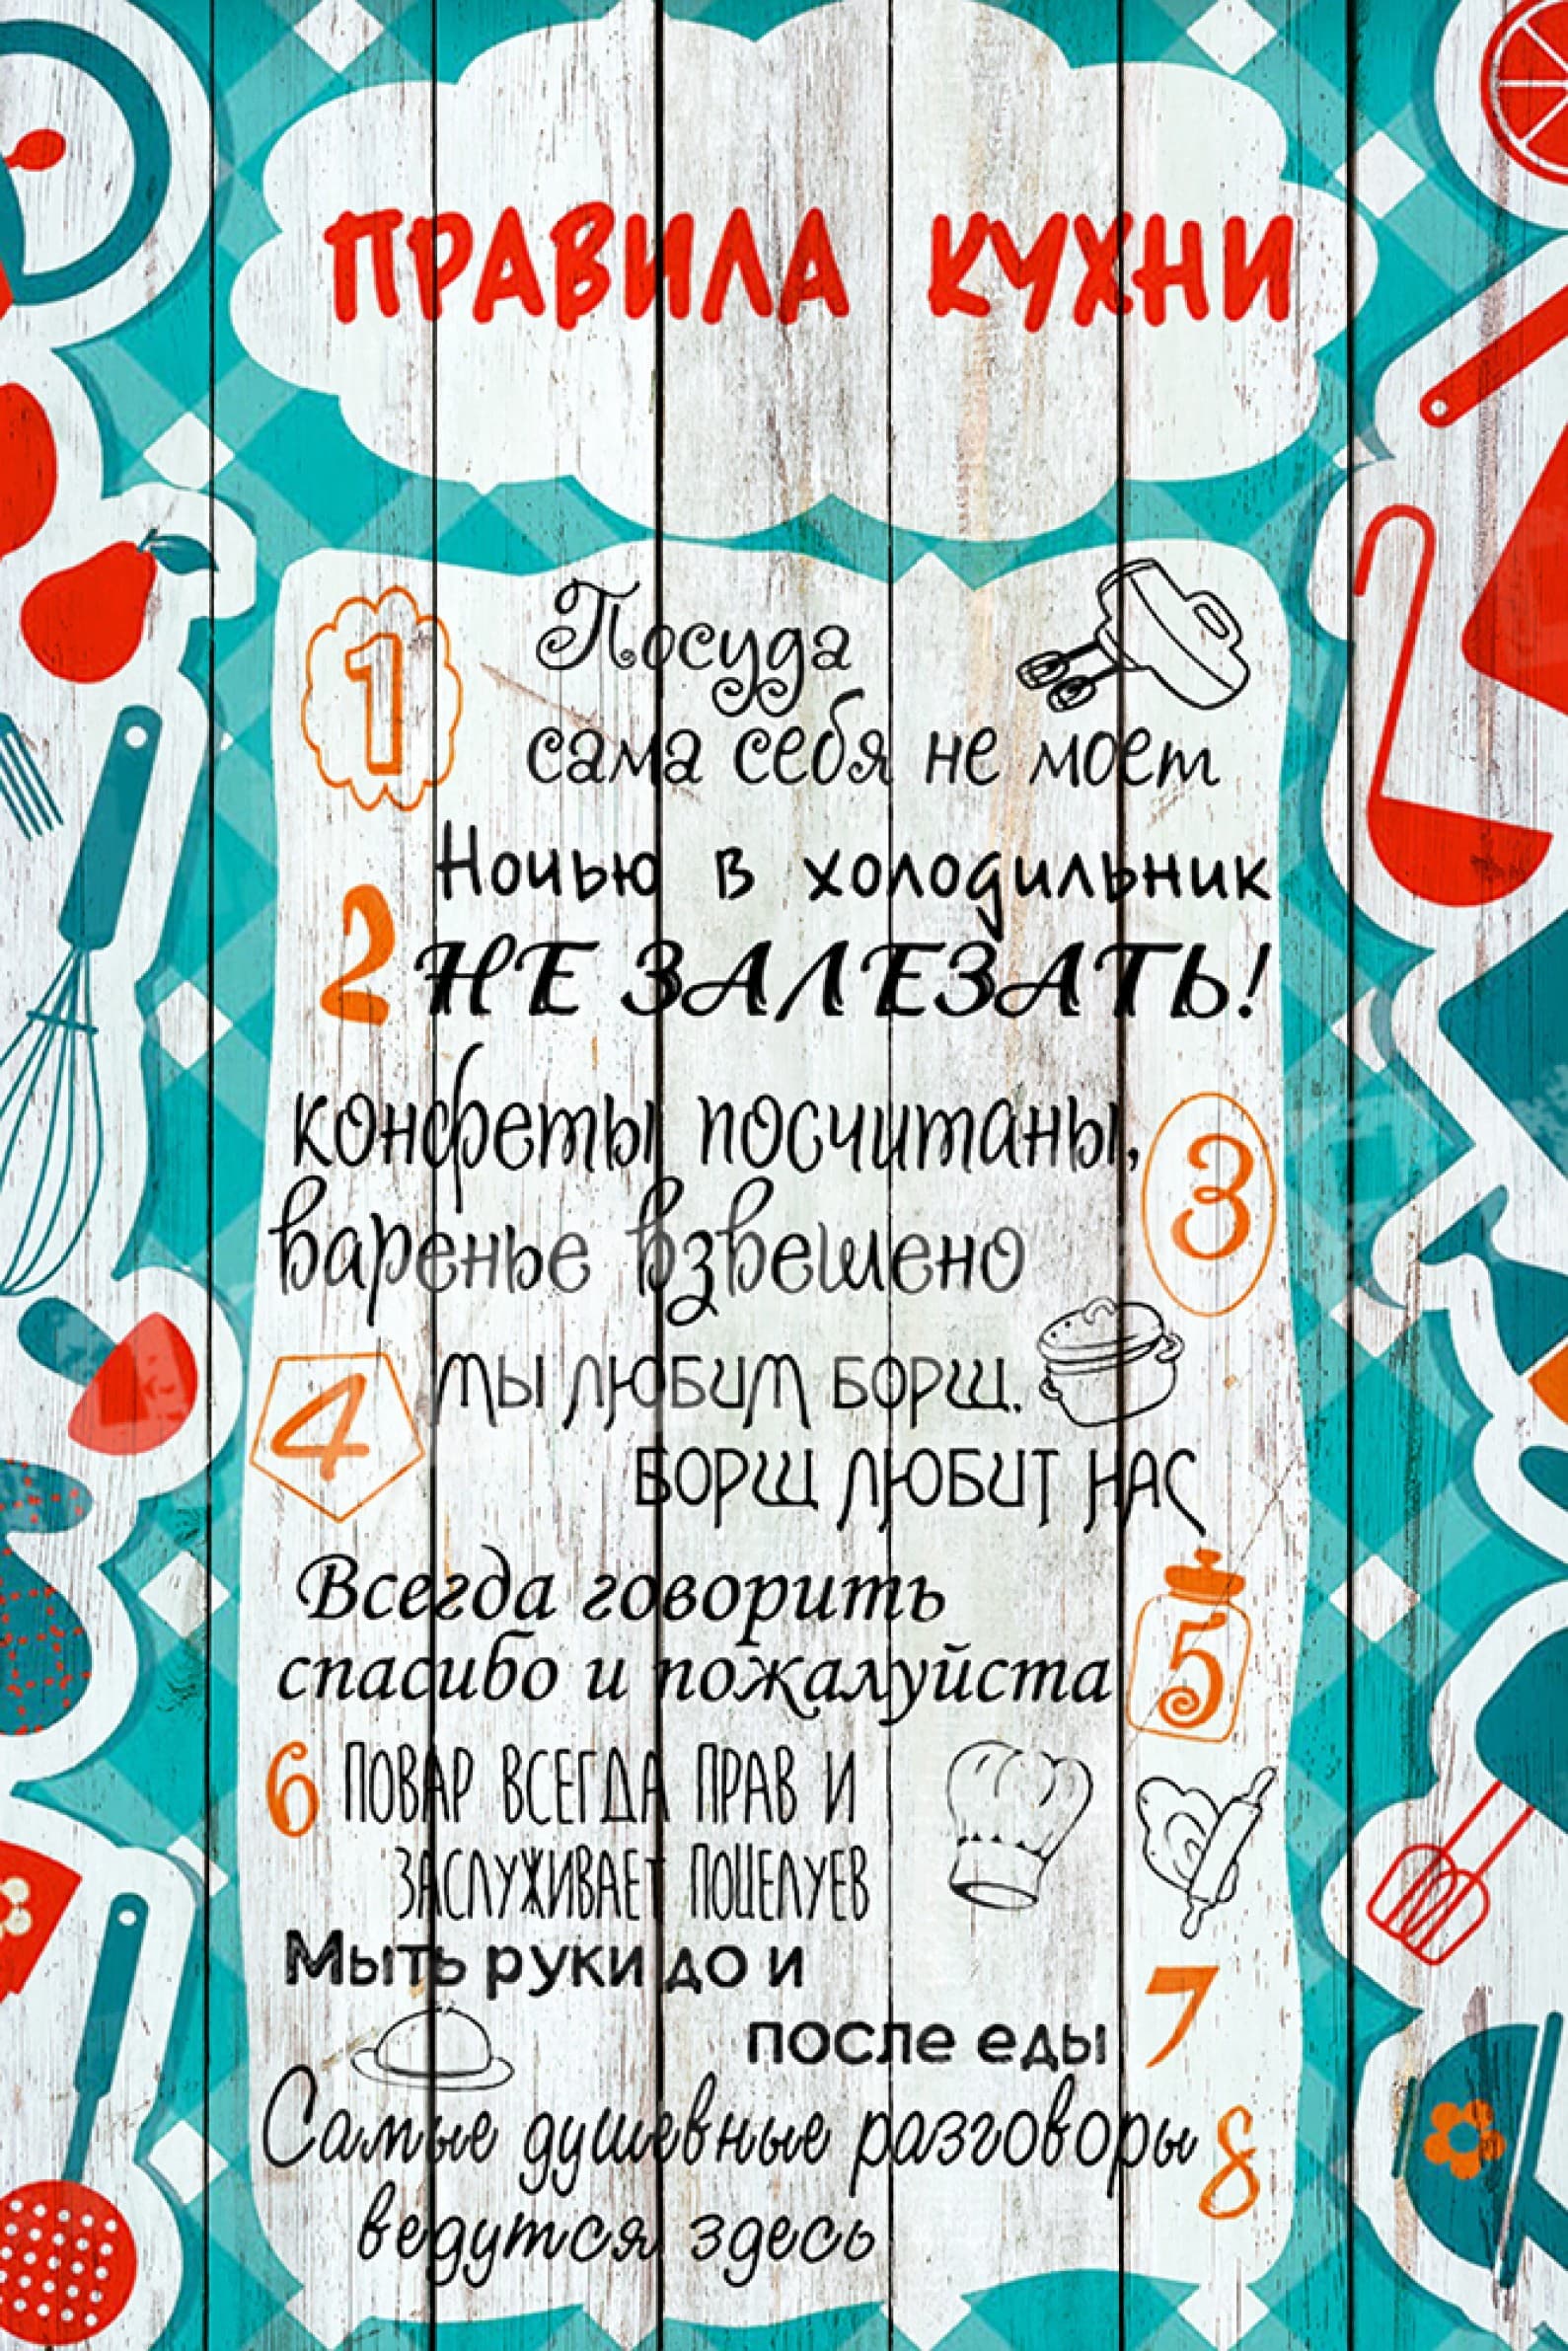 ПРАВИЛА КУХНИ
1 Посуда
сама себя не моет
Ночью в холодильник
2 НЕ ЗАЛЕЗАТЬ!
конфеты посчитаны,
3
варенье взвешено
4 МЫ ЛЮБИМ БОРЩ.
БОРЩ ЛЮБИТ НАС
Всегда говорить
5
спасибо и пожалуйста
6 ПОВАР ВСЕГДА ПРАВ И
ЗАСЛУЖИВАЕТ ПОЦЕЛУЕВ
Мыть руки до и
после еды 7
Самые душевные разговоры 8
ведутся здесь